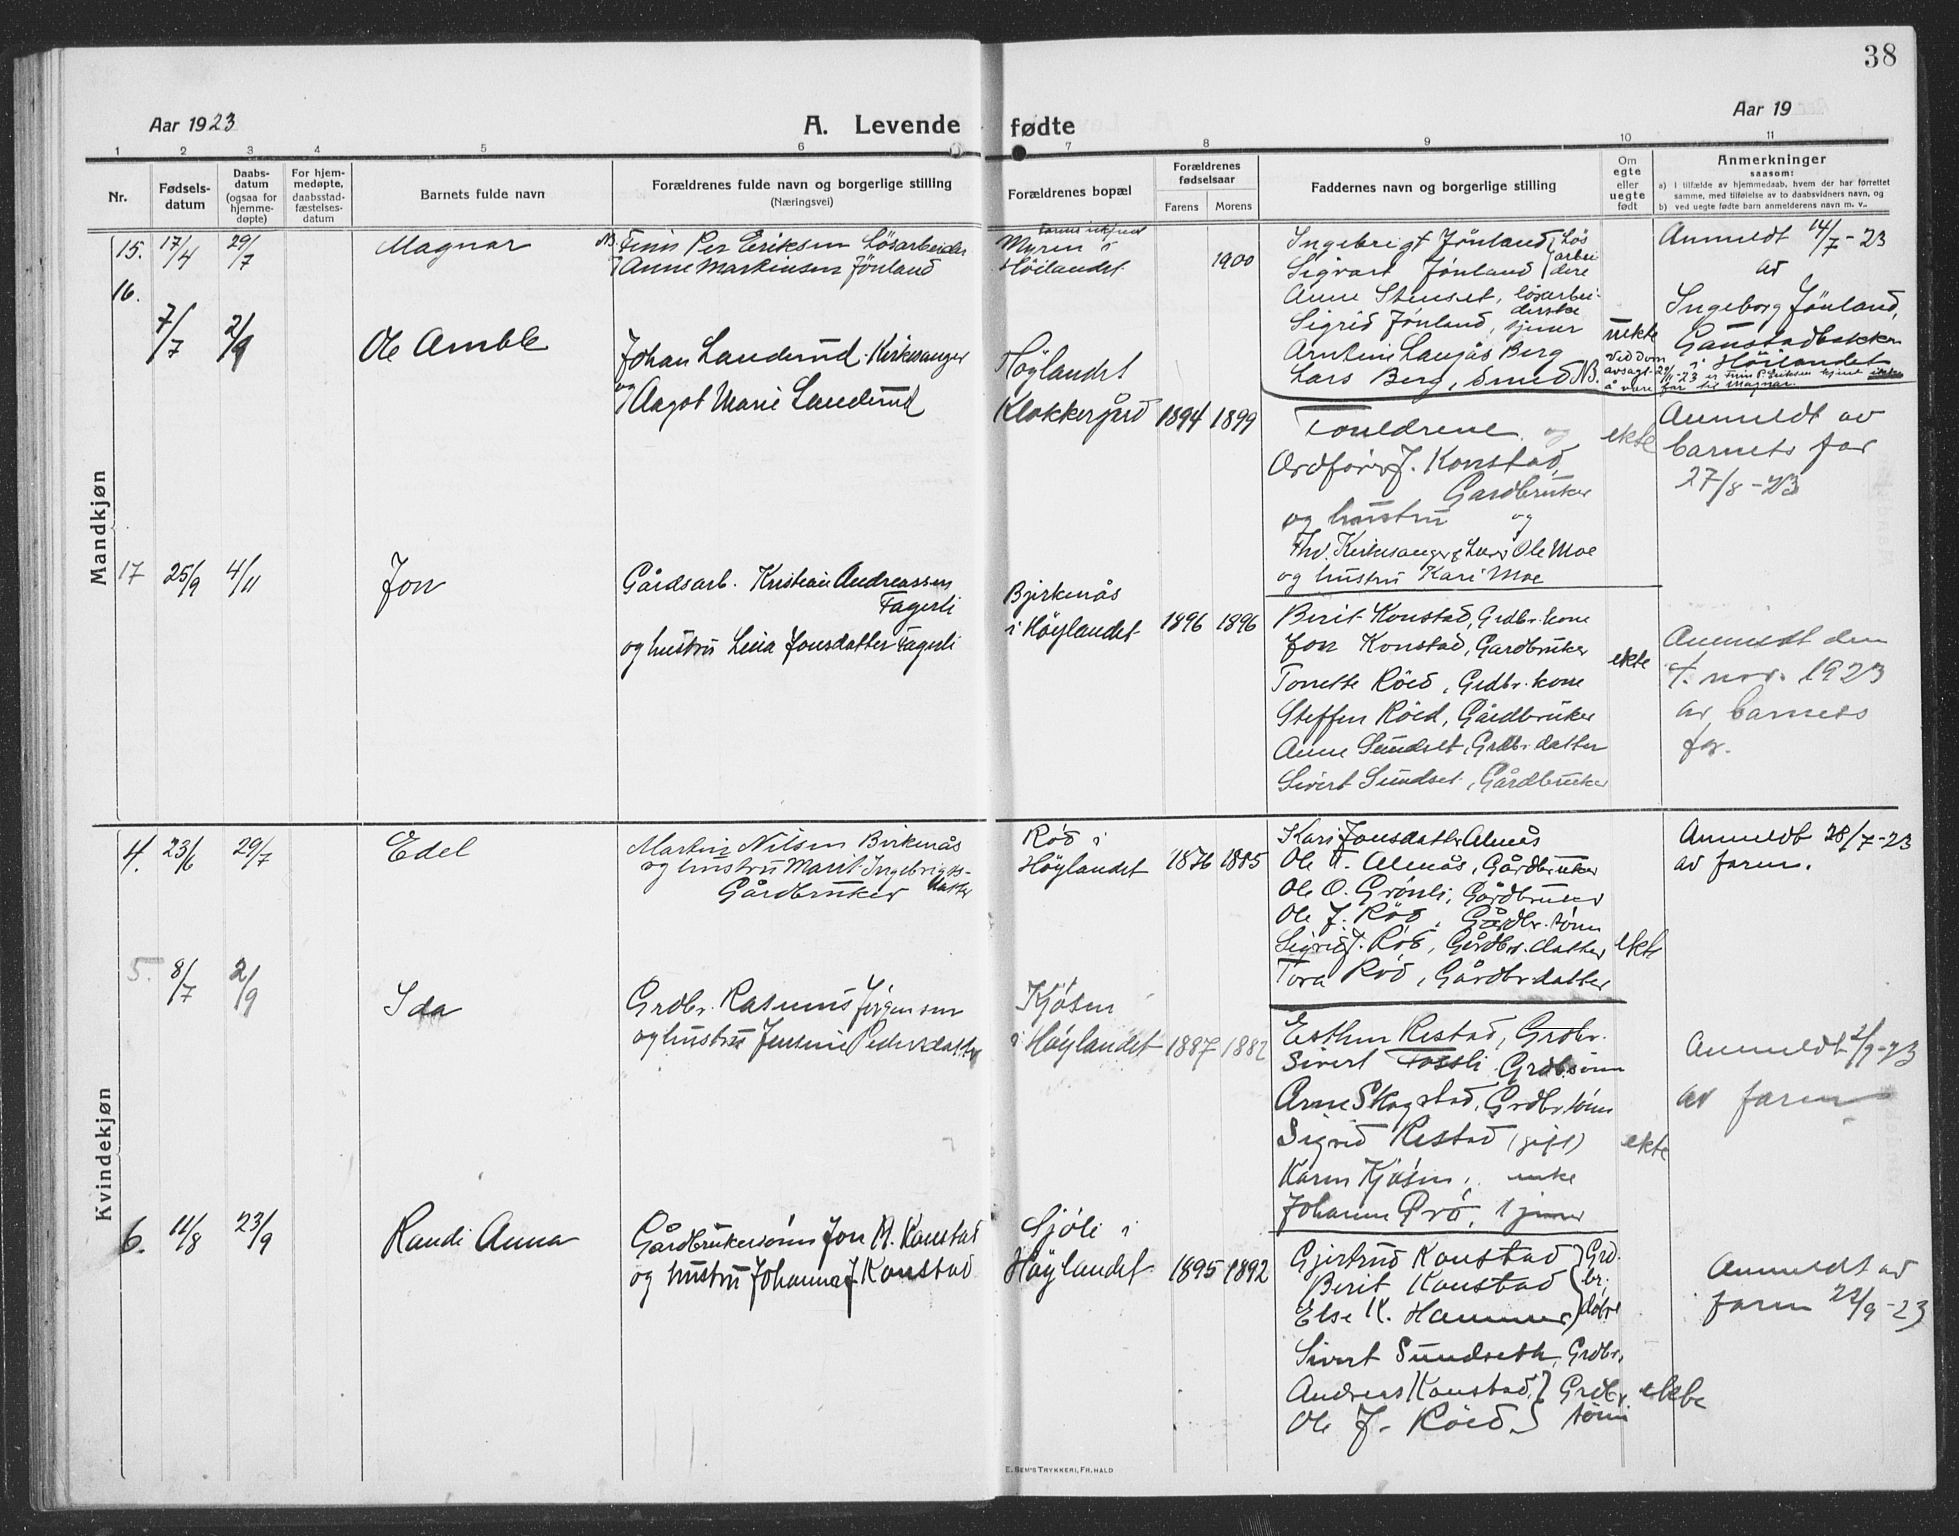 38
Aar 1923
A. Levende fødte
Aar 19
1 2 3 4 5 6 7 8 9 10 11
Nr.
Fødsels-
datum
Daabs-
datum
(ogsaa for
hjemme-
døpte)
For hjem-
medøpte,
daabsstad-
fæstelses-
datum
Barnets fulde navn
Forældrenes fulde navn og borgerlige stilling
(Næringsvei)
Forældrenes bopæl
Forældrenes
fødselsaar
Farens Morens
Faddernes navn og borgerlige stilling
Om
egte
eller
uegte
født
Anmerkninger
saasom:
a) I tilfælde av hjemmedaab, hvem der har forrettet
samme, med tilføielse av to daabsvidners navn, og
b) ved uegte fødte barn anmelderens navn m. v..
Mandkjøn
15. 17/4 29/7 Magnar
NB Finn Per Eriksen Løsarbeider
og Anne Martinsen Jønland
farens ukjent
Myren i
Höilandet
1900
Ingebrigt Jønland } løs
Sigvart Jønland } arbei
dere
Anne Stenset, løsarbei-
derske
Sigrid Jønland, tjener
Arntine Langås Berg
Lars Berg, Smed NB.
uekte
Ved dom
avsagt 29/11-23 er Finn P. Eriksen kjent ikke
å være far til Magnar.
Anmeldt 14/7-23
av
Ingeborg Jönland,
Ganstadbakken
i Höilandet
16. 7/7 2/9 Ole Amble
Johan Landerud. Kirkesanger
og Aagot Marie Landerud
Høylandet
Klokkergård
1894 1899
Foreldrene og
Ordfører J. Konstad,
Gardbruker
og hustru og
Fhv. Kirkesanger & Lærer Ole Moe
og hustru Kari Moe
ekte
Anmeldt av
barnets far
27/8-23
17 25/9 4/11 Jon
Gårdsarb. Kristian Andreassen
Fagerli
og hustru Lina Jonsdatter Fagerli
Bjirkenås
i Høylandet
1896 1896
Berit Konstad, Grdbr. kone
Jon Konstad, Gardbruker
Torrette Röed, Grdbr. kone
Steffen Röed, Gårdbruker
Anne Sundset, Grdbr. datter
Sivert Sundset, Gårdbruker
ekte
Anmeldt den
4. nov. 1923
av barnets
far.
Kvindekjøn
4. 23/6 29/7 Edel
Martin Nilsen Birkenås
og hustru Marit Ingebrigts-
datter
Gårdbruker
Röd i
Høylandet
1876 1885
Kari Jonsdatter Almås
Ole T. Almås, Gårdbruker
Ole O. Grönli, Gårdbruker
Ole J. Röd, Gårdbr. sönn
Sigrid J. Röd, Gårdbr. datter
Tora Röd, Gårdbr. datter
ekte
Anmeldt 28/7-23
av faren.
5. 8/7 2/9 Ida
Grdbr. Rasmus Jørgensen
og hustru Jensine Pedersdatter
Kjøsen
i Høylandet
1887 1882
Esthen Restad, Grdbr.
Sivert Fossli Grdbr.sönn
Arne Skogstad, Grdbr. sönn
Sigrid Restad (gift)
Karen Kjøsen, enke
Johanne Prö, tjener
ekte
Anmeldt 2/9-23
av faren
6. 11/8 23/9 Randi Anna
Gårdbrukersönn Jon M. Konstad
og hustru Johanna J Konstad
Sjöli i
Høylandet
1895 1892
Gjertrud Konstad } Grd.
Berit Konstad } br.
Else K. Hammer } døtre
Sivert Sundseth, Grdbr.
Andreas Konstad } Grdbr
Ole J. Röed } sönn
ekte
Anmeldt av
faren 22/9-23
E. Sem's Trykkeri, Fr.hald